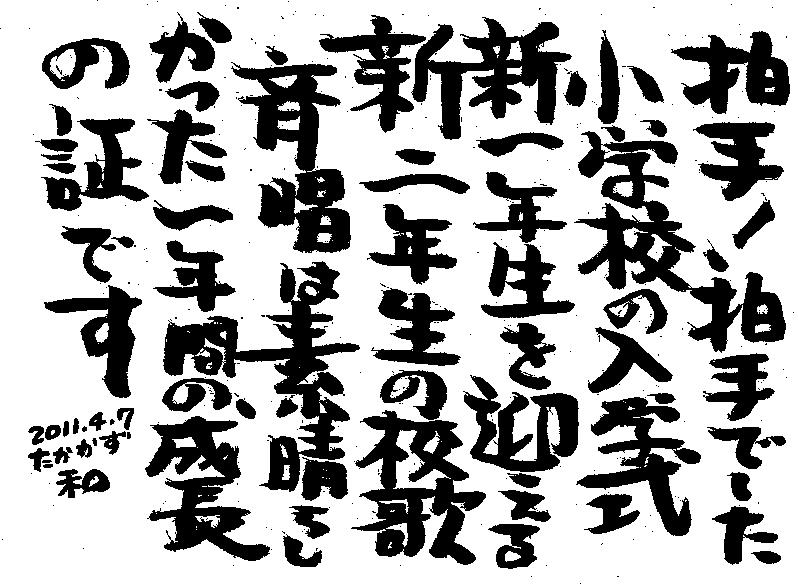 拍手！拍手でした
小学校の入学式
新一年生を迎える
新二年生の校歌
斉唱は素晴らし
かった一年間の成長
の証です
2011.4.7
たかかず
和